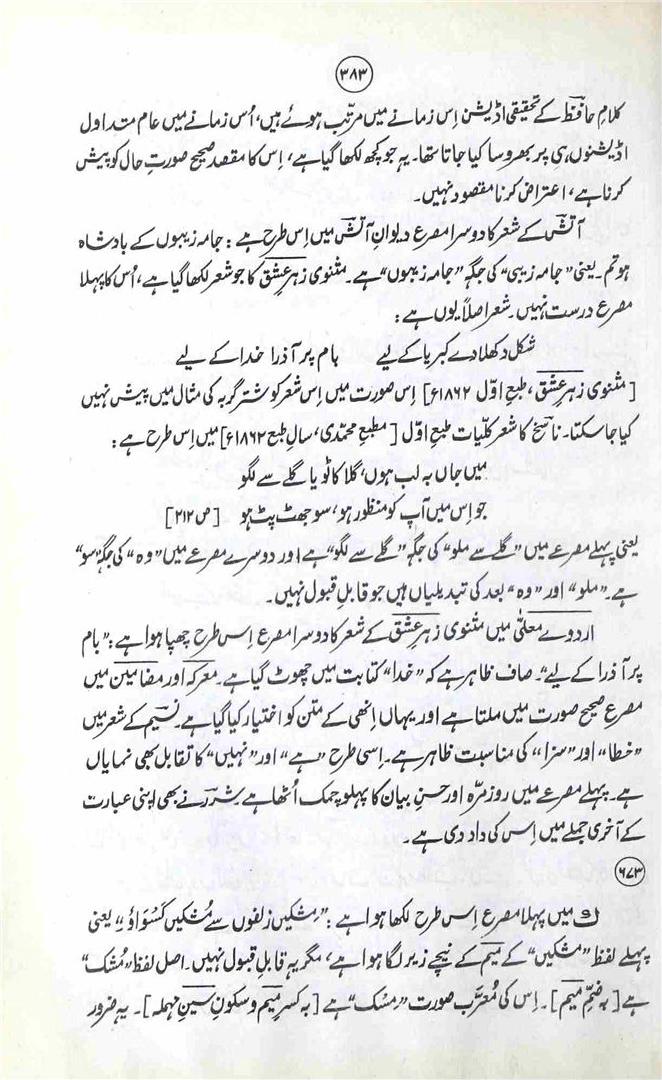 ۳۸۳
کلامِ حافظؔ کے تحقیقی اڈیشن اِس زمانے میں مرتّب ہوئے ہیں، اُس زمانے میں عام متداول
اڈیشنوں ہی پر بھروسا کیا جاتا تھا۔ یہ جو کچھ لکھا گیا ہے، اِس کا مقصد صحیح صورتِ حال کو پیش
کرنا ہے، اعتراض کرنا مقصود نہیں۔
آتشؔ کے شعر کا دوسرا مصرع دیوانِ آتشؔ میں اِس طرح ہے: جامہ زیبوں کے بادشاہ
ہو تم۔ یعنی "جامہ زیبی" کی جگہ "جامہ زیبوں" ہے۔ مثنوی زہرِ عشق کا جو شعر لکھا گیا ہے، اُس کا پہلا
مصرع درست نہیں۔ شعر اصلاً یوں ہے:
شکل دکھلا دے کبریا کے لیے بام پر آ ذرا خدا کے لیے
[مثنوی زہرِ عشق، طبعِ اوّل ۱۸۶۲ء] اِس صورت میں اِس شعر کو شترگربہ کی مثال میں پیش نہیں
کیا جا سکتا۔ ناسخؔ کا شعر کلّیات طبعِ اوّل [مطبعِ محمّدی، سالِ طبع ۱۸۶۲ء] میں اِس طرح ہے:
میں جاں بہ لب ہوں، گلا کاٹو یا گلے سے لگو
جو اِس میں آپ کو منظور ہو، سو جھٹ پٹ ہو [ص ۲۱۲]
یعنی پہلے مصرعے میں "گلے سے ملو" کی جگہ "گلے سے لگو" ہے اور دوسرے مصرعے میں "وہ" کی جگہ "سو"
ہے۔ "ملو" اور "وہ" بعد کی تبدیلیاں ہیں جو قابلِ قبول نہیں۔
اردوے معلّیٰ میں مثنوی زہرِ عشق کے شعر کا دوسرا مصرع اِس طرح چھپا ہوا ہے: "بام
پر آ ذرا کے لیے"۔ صاف ظاہر ہے کہ "خدا" کتابت میں چھوٹ گیا ہے۔ معرکہ اور مضامین میں
مصرع صحیح صورت میں ملتا ہے اور یہاں اِنھی کے متن کو اختیار کیا گیا ہے۔ نسیمؔ کے شعر میں
"خطا" اور "سزا" کی مناسبت ظاہر ہے۔ اِسی طرح "ہے" اور "نہیں" کا تقابل بھی نمایاں
ہے۔ پہلے مصرعے میں روزمرّہ اور حسنِ بیان کا پہلو چمک اُٹھا ہے۔ شررؔ نے بھی اپنی عبارت
کے آخری جملے میں اِس کی داد دی ہے۔
۶۷۳
ک میں پہلا مصرع اِس طرح لکھا ہوا ہے: "مِشکیں زلفوں سے مُشکیں کسواؤ"۔ یعنی
پہلے لفظ "مِشکیں" کے میم کے نیچے زیر لگا ہوا ہے، مگر یہ قابلِ قبول نہیں۔ اصل لفظ "مُشک"
ہے [بہ ضمِّ میم]۔ اِس کی مُعرَّب صورت "مِسْک" ہے [بہ کسرِ میم و سکونِ سینِ مہملہ]۔ یہ ضرور